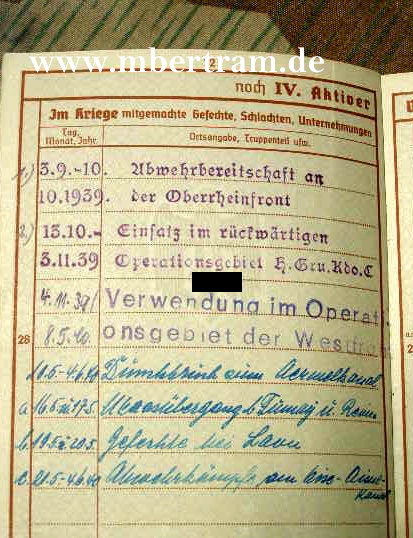 www.mbertram.de
noch IV. Aktiver
Im Kriege mitgemachte Gefechte, Schlachten, Unternehmungen
Tag, Monat, Jahr
Ortsangabe, Truppenteil usw.
1.) 3.9.-10. Abwehrbereitschaft an
10.1939. der Oberrheinfront
2.) 13.10.- Einsatz im rückwärtigen
3.11.39 Operationsgebiet H.Gru.Kdo.C
4.11.39/ Verwendung im Operati-
28 8.5.40 onsgebiet der Westfront
10.5-4.6.40 Durchbruch zum Aermelkanal
a. 16.5. 17.5. Maasübergang b. Fumay u.
b. 19.5. 20.5. Gefechte bei Laon
c. 21.5.-4.6.40 Abwehrkämpfe am Oise-Aisne-
Kanal